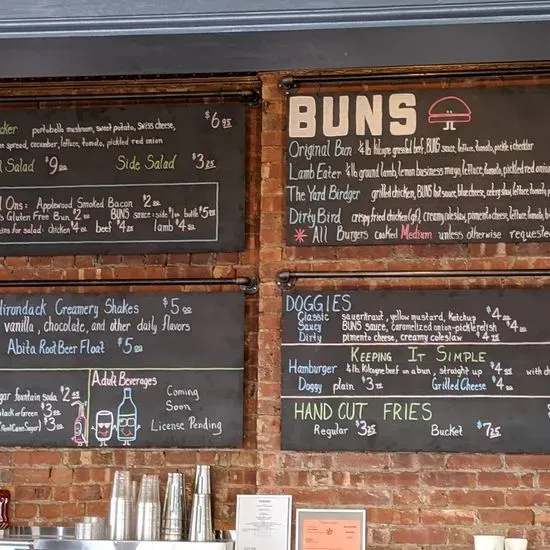 portobello mushroom, sweet potato, swiss cheese, $6.95
spread, cucumber, lettuce, tomato, pickled red onion
Salad $9.00 Side Salad $3.25
Ons: Applewood Smoked Bacon $2.00
Gluten Free Bun $2.00 BUNS sauce: side $1.00 bottle $5.00
for salad: chicken $4.00 beef $4.25 lamb $4.00
Creamery Shakes $5.00
vanilla, chocolate, and other daily flavors
Abita Root Beer Float $5.00
fountain soda $2.45
Black or Green $3.00
(Cane Sugar) $3.00
Adult Beverages
Coming
Soon
License Pending
BUNS
Original Bun ¼ lb kilgore grassfed beef, BUNS sauce, lettuce, tomato, pickle & cheddar
Lamb Eater ¼ lb ground lamb, lemon business mayo, lettuce, tomato, pickled red onion
The Yard Birdger grilled chicken, BUNS hot sauce, blue cheese, celery slaw, lettuce, tomato,
Dirty Bird crispy fried chicken (gf), creamy coleslaw, pimento cheese, lettuce, tomato,
* All Burgers cooked Medium unless otherwise requested
DOGGIES
Classic sauerkraut, yellow mustard, Ketchup $4.00
Saucy BUNS sauce, caramelized onion-pickle relish $4.00
Dirty pimento cheese, creamy coleslaw $4.75
KEEPING IT SIMPLE
Hamburger ¼ lb Kilgore beef on a bun, straight up $4.95 with
Doggy plain $3.75 Grilled Cheese $4.00
HAND CUT FRIES
Regular $3.25 Bucket $7.25